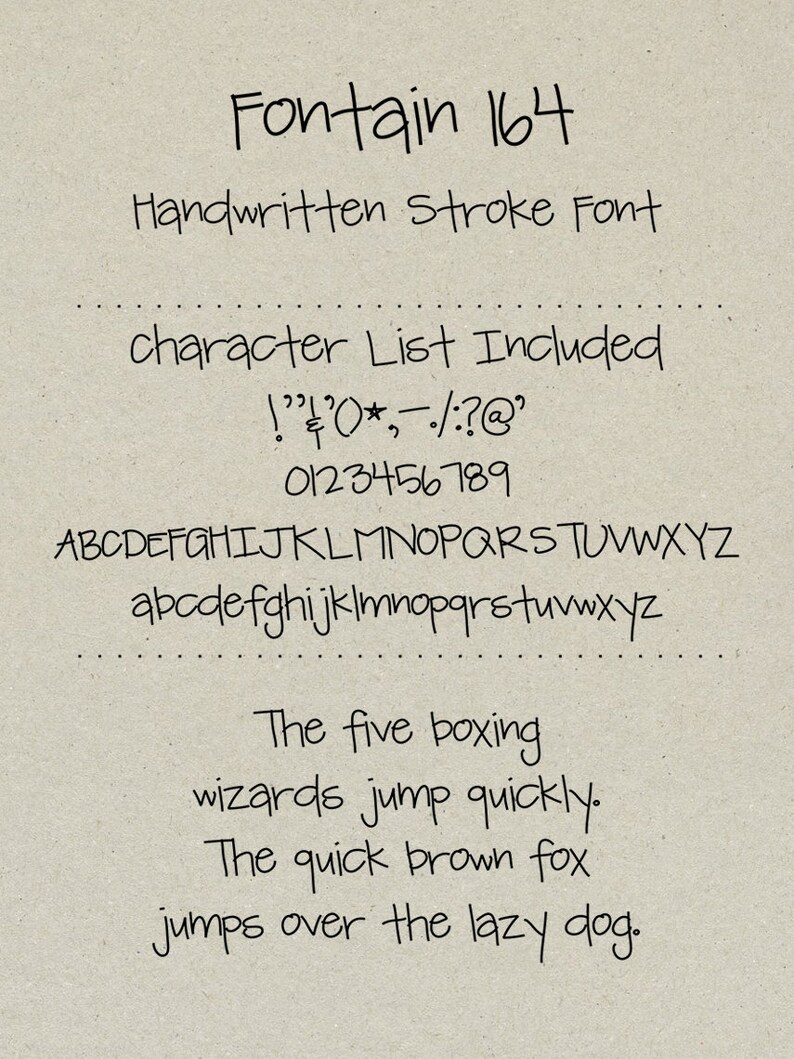 Fontain 164
Handwritten Stroke Font
Character List Included
!”&’()*,–./:?@’
0123456789
ABCDEFGHIJKLMNOPQRSTUVWXYZ
abcdefghijklmnopqrstuvwxyz
The five boxing
wizards jump quickly.
The quick brown fox
jumps over the lazy dog.